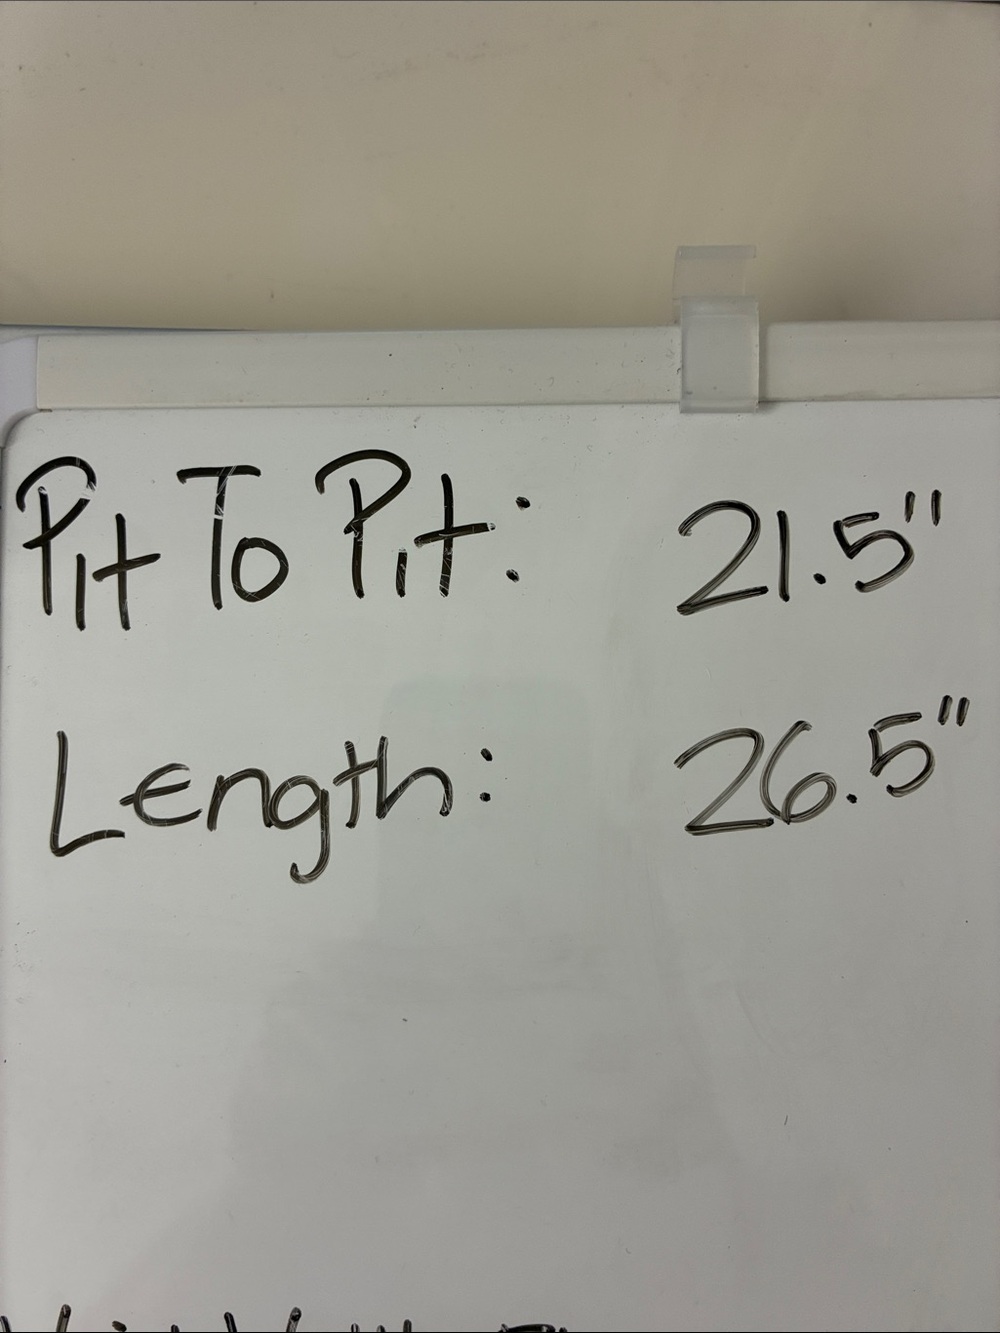 Pit To Pit: 21.5"
Length: 26.5"